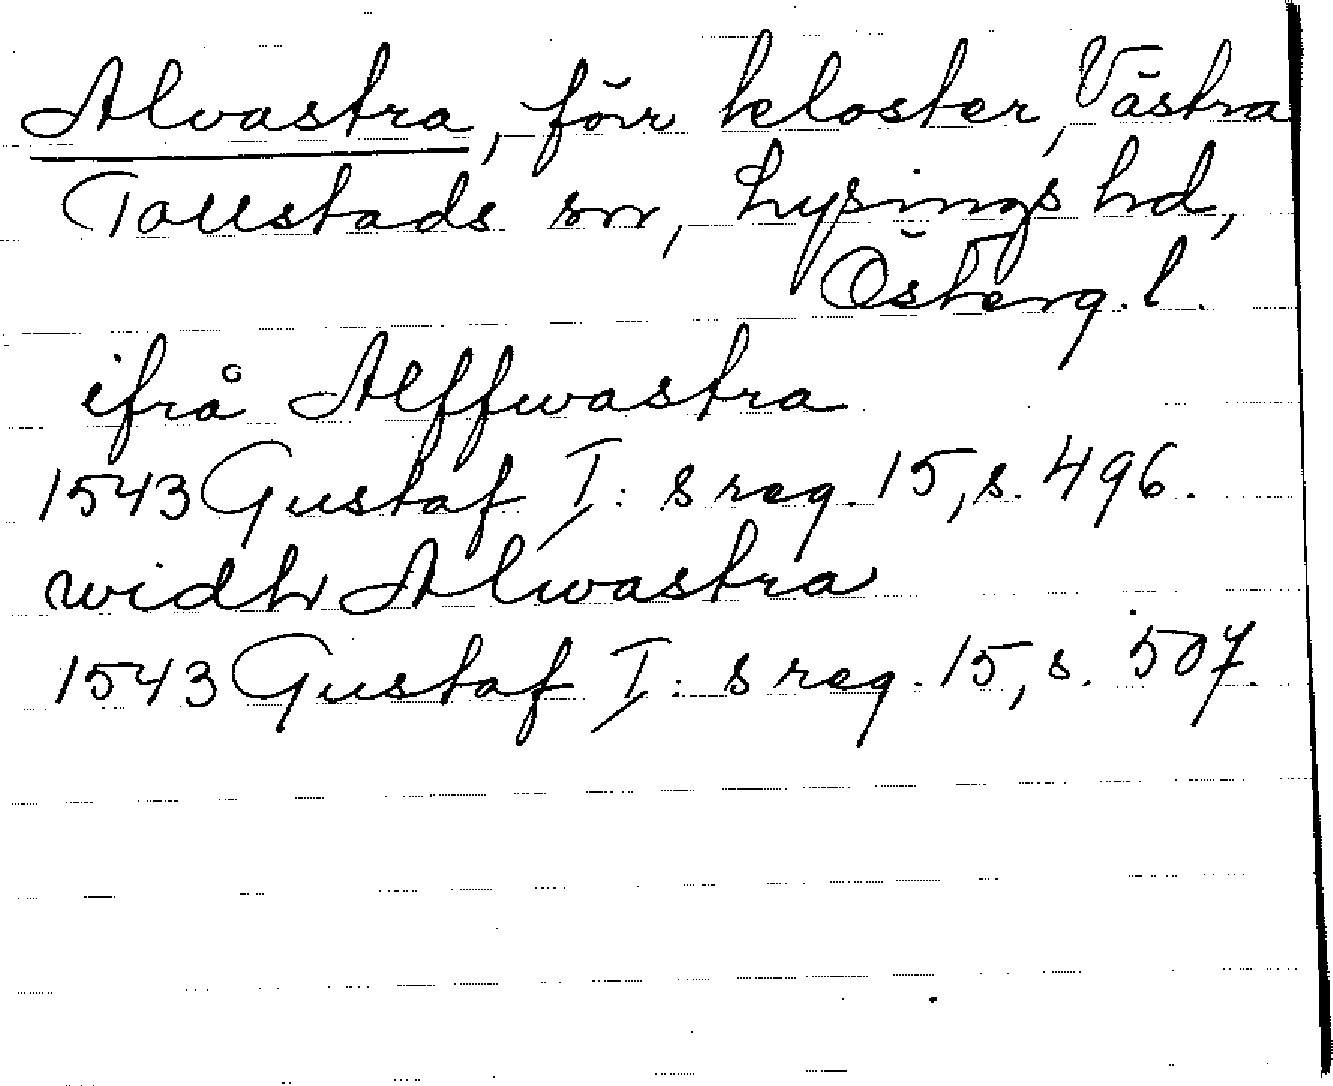 Alvastra, förr kloster, Västra
Tollstads sn, Lysings hd,
Österg. l.
ifrå Alffwastra
1543 Gustaf I: s reg. 15, s. 496.
widh Alwastra
1543 Gustaf I: s reg. 15, s. 507.